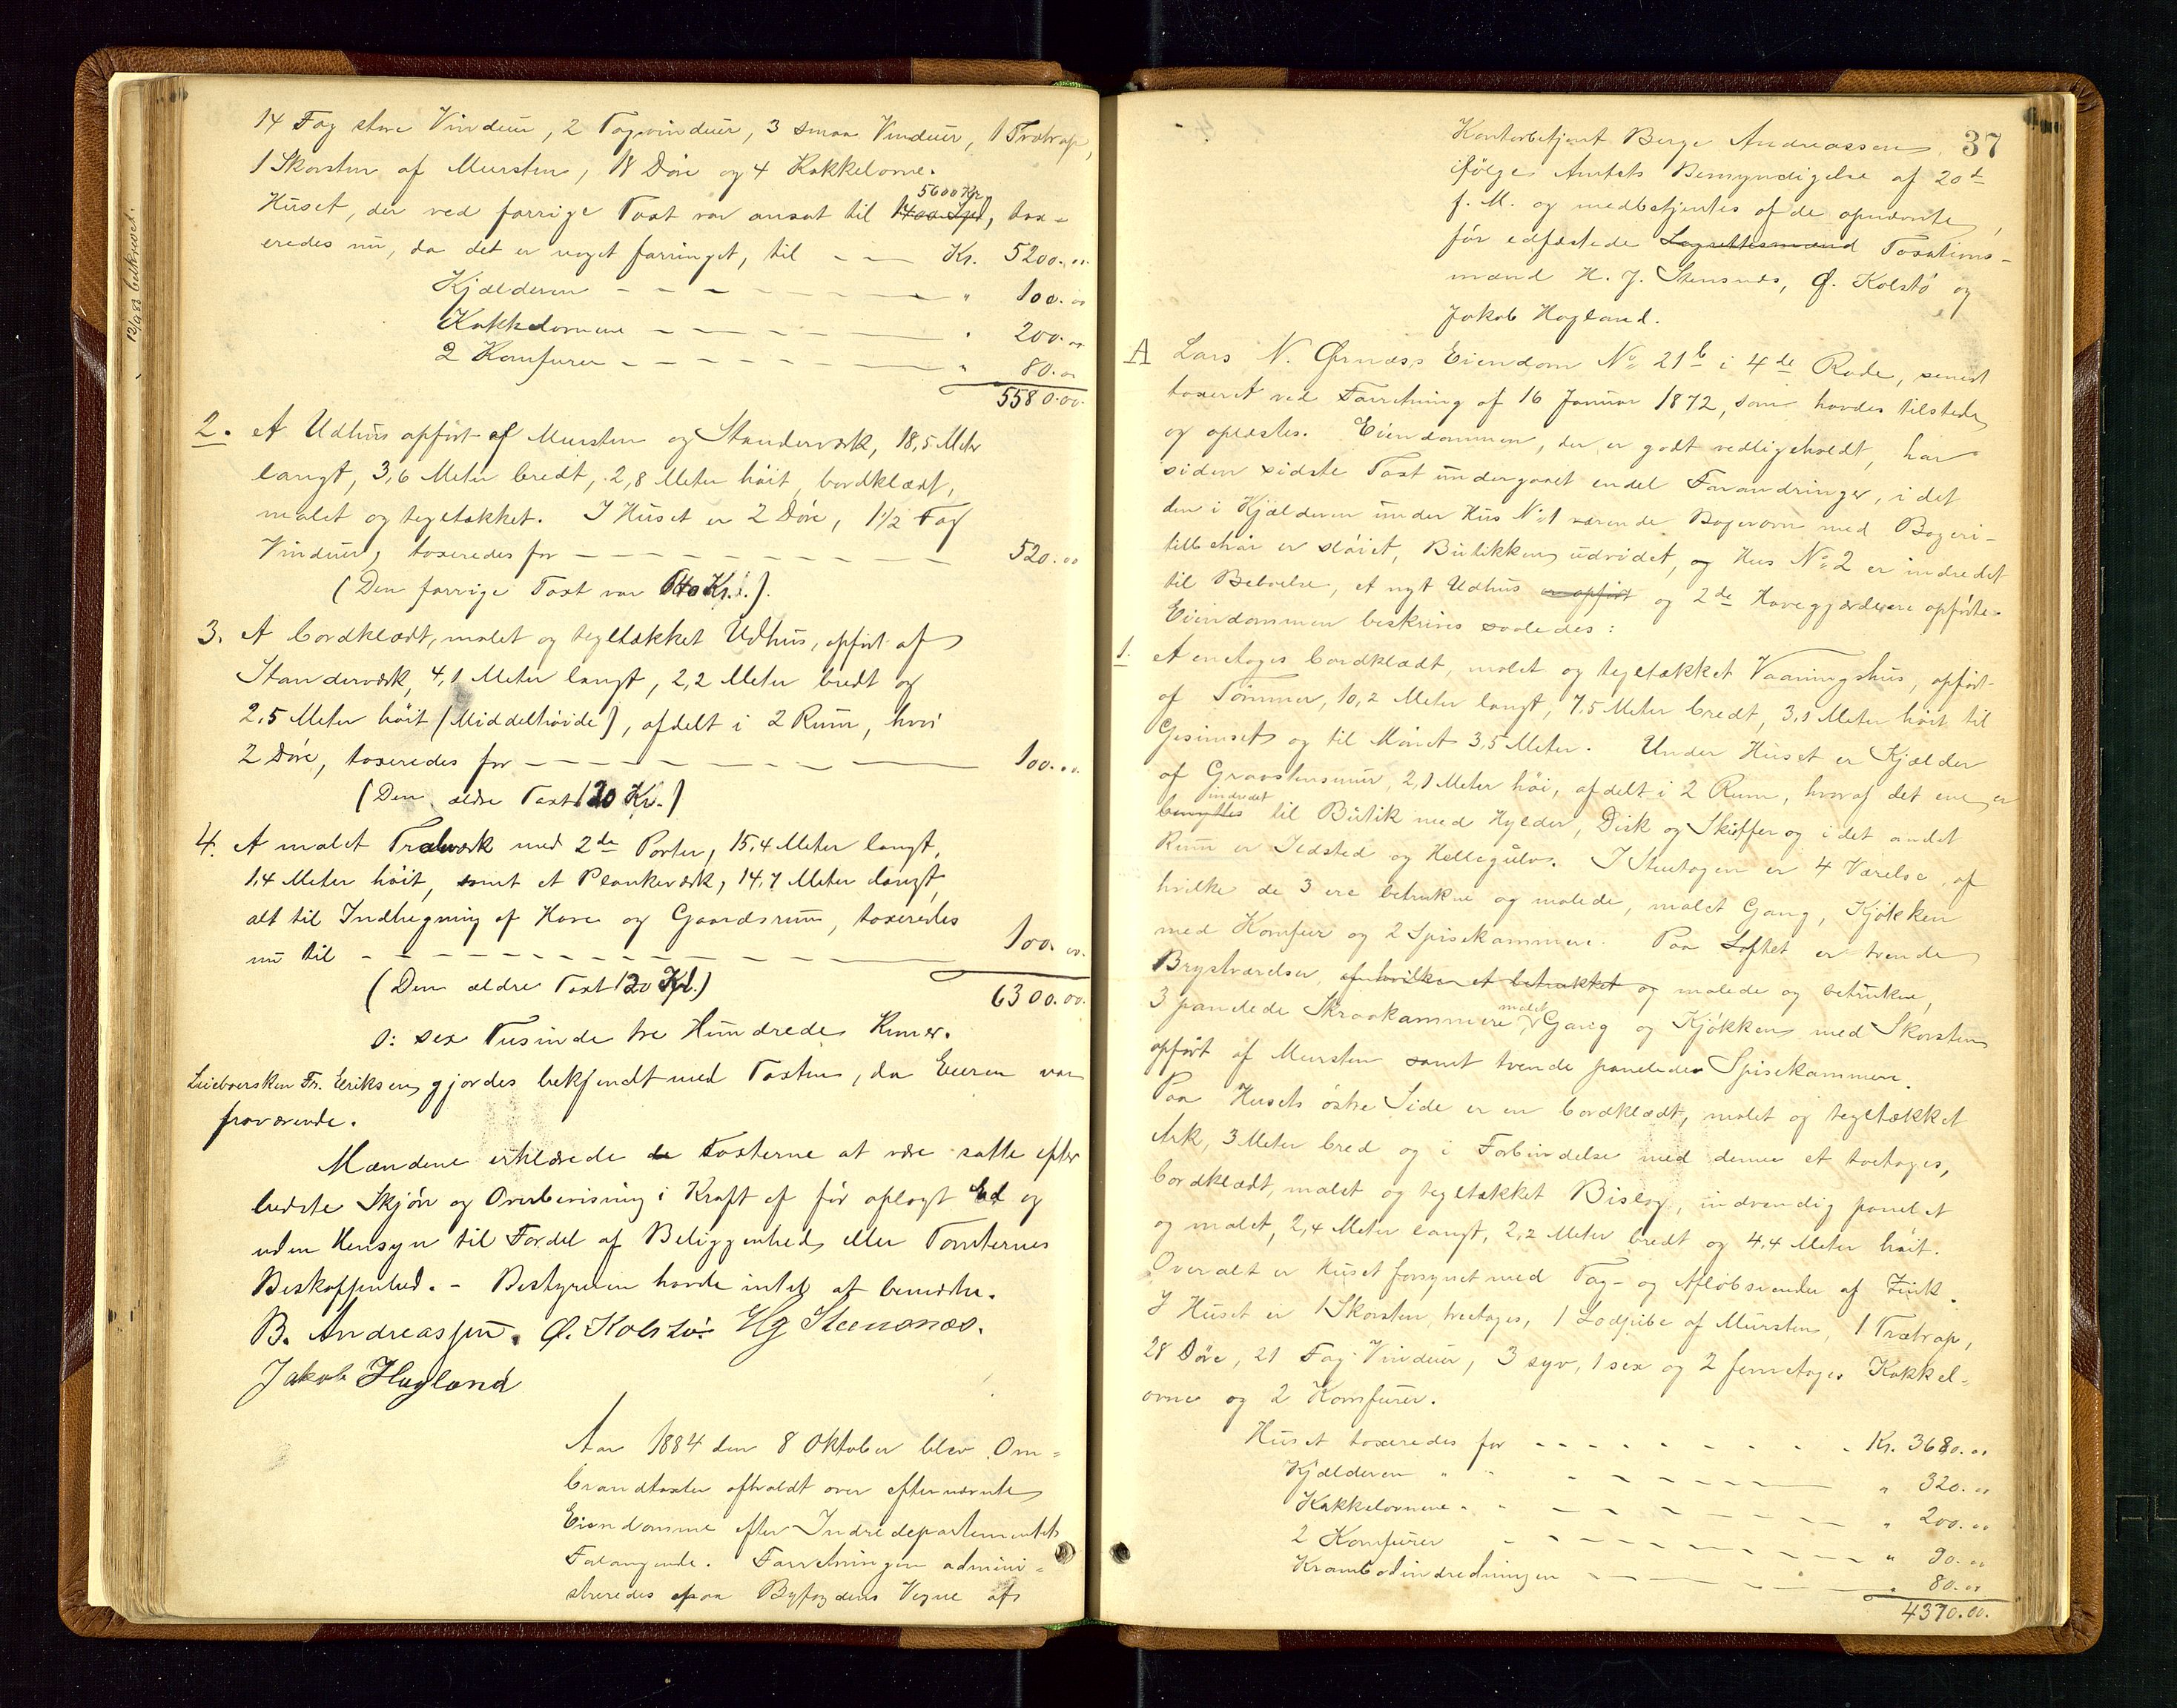 12/9 83 bekrævet.
14 Fag store Vinduer, 2 Tagvinduer, 3 smaa Vinduer, 1 Trætrap,
1 Skorsten af Mursten, 18 Døre og 4 Kakkelovne.
Huset, der ved forrige Taxt var ansat til 1400 Spd 5600 Kr, tax-
eredes nu, da det er noget forringet, til — — Kr. 5200.00
Kjælderen — — — " 100.00
Kakkelovnene — — — " 200.00
2 Komfurer — — — " 80.00
5580.00
2. Et Udhus opført af Mursten og Standerværk, 18,5 Meter
langt, 3,6 Meter bredt, 2,8 Meter høit, bordklædt,
malet og tegltækket. I Huset er 2 Døre, 1 1/2 Fag
Vinduer, taxeredes for — — — 520.00
(Den forrige Taxt var 640 Kr.).
3. Et bordklædt, malet og tegltækket Udhus, opført af
Standerværk, 4,1 Meter langt, 2,2 Meter bredt og
2,5 Meter høit (Middelhøide), afdelt i 2 Rum, hvori
2 Døre, taxeredes for — — — 100.00
(Den ældre Taxt 120 Kr.)
4. Et malet Træværk med 2de Porter, 15,4 Meter langt,
1,4 Meter høit, samt et Plankeværk, 14,7 Meter langt,
alt til Indhegning af Have og Gaardsrum, taxeredes
nu til — — — 100.00
(Den ældre Taxt 120 Kr.)
6300.00
o: sex Tusinde tre Hundrede Kroner.
Leieboersken Fr. Eriksen, gjordes bekjendt med Taxten, da Eieren var
fraværende.
Mændene erklærede de Taxterne at være satte efter
bedste Skjøn og Overbevisning i Kraft af før aflagt Ed og
uden Hensyn til Fordel af Beliggenhed eller Tomternes
Beskaffenhed. – Bestyreren havde intet at bemærke.
B. Andreassen. Ø. Kolstø. Hg Steensnæs.
Jakob Hagland
Aar 1884 den 8 Oktober blev Om-
brandtaxter afholdt over efternævnte
Eiendomme efter Indredepartementets
Forlangende. Forretningen admini-
streredes paa Byfogdens Vegne af
37
Kontorbetjent Berge Andreassen
ifølge Amtets Bemyndigelse af 20de
f. M. og medbetjentes af de opnævnte,
før edfæstede Lagrettesmænd Taxations-
mænd H. J. Stensnæs, Ø. Kolstø og
Jakob Hagland.
A Lars N. Ørnæss Eiendom No 21b i 4de Rode, senest
taxeret ved Forretning af 16 Januar 1872, som havdes tilstede
og oplæstes. Eiendommen, der er godt vedligeholdt, har
siden sidste Taxt undergaaet endel Forandringer, i det
den i Kjælderen under Hus No 1 værende Bagerovn med Bageri-
tilbehør er sløifet, Butikken udvidet, og Hus No 2 er indredet
til Beboelse, et nyt Udhus er opført og 2de Havegjærdere opførte.
Eiendommen beskrives saaledes:
1. Et enetages bordklædt, malet og tegltækket Vaaningshus, opført
af Tømmer, 10,2 Meter langt, 7,5 Meter bredt, 3,1 Meter høit til
Gesimset og til Mønet 3,5 Meter. Under Huset er Kjælder
af Graastensmur, 2,1 Meter høi, afdelt i 2 Rum, hvoraf det ene er
benyttes indredet til Butik med Hylder, Disk og Skuffer og i det andet
Rum er Ildsted og Hellegulv. I Stuetagen er 4 Værelser, af
hvilke de 3 ere betrukne og malede, malet Gang, Kjøkken
med Komfur og 2 Spisekammere. Paa Loftet er tvende
Brystværelser, af hvilken et betrukket og malede og betrukne,
3 panelede Skraakammere, malet Gang og Kjøkken med Skorsten
opført af Mursten samt tvende panelede Spisekammere.
Paa Husets østre Side er en bordklædt, malet og tegltækket
Ark, 3 Meter bred og i Forbindelse med denne et toetages,
bordklædt, malet og tegltækket Bislag, indvendig panelet
og malet, 2,4 Meter langt, 2,2 Meter bredt og 4,4 Meter høit.
Overalt er Huset forsynet med Tag- og Afløbsrender af Zink.
I Huset er 1 Skorsten, treetages, 1 Lodpibe af Mursten, 1 Trætrap,
28 Døre, 21 Fag Vinduer, 3 syv, 1 sex og 2 femetages Kakkel-
ovne og 2 Komfurer.
Huset taxeredes for — — — Kr. 3680.00
Kjælderen " " — — — " 320.00
Kakkelovnene " " — — — " 200.00
2 Komfurer — — — " 90.00
Krambodindredningen — — — " 80.00
4370.00.